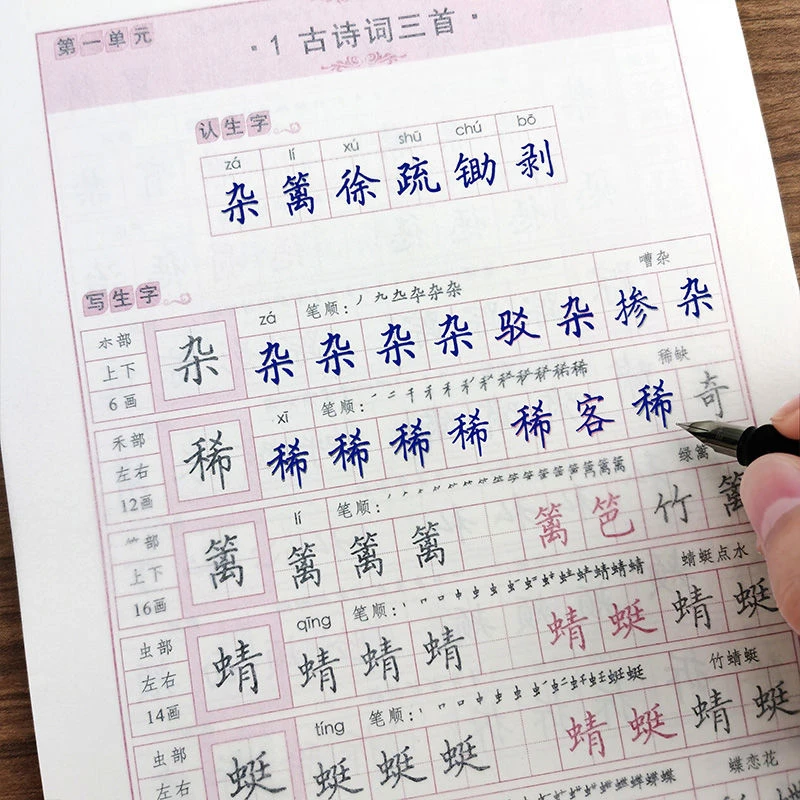 第一单元
·1 古诗词三首·
认生字
zá lí xú shū chú bō
杂 篱 徐 疏 锄 剥
写生字
木部 上下 6画
zá 笔顺: 嘈杂
杂 杂 杂 杂 杂 驳 杂 掺 杂
禾部 左右 12画
xī 笔顺: 稀缺
稀 稀 稀 稀 稀 稀 客 稀 奇
竹部 上下 16画
lí 笔顺: 绿篱
篱 篱 篱 篱 篱 笆 竹 篱
虫部 左右 14画
qīng 笔顺: 蜻蜓点水
蜻 蜻 蜻 蜻 蜻 蜓 蜻 蜓
虫部 左右
tíng 笔顺: 竹蜻蜓
蜓 蜓 蜓 蜓 蜻 蜓 蜻 蜓
蝶恋花